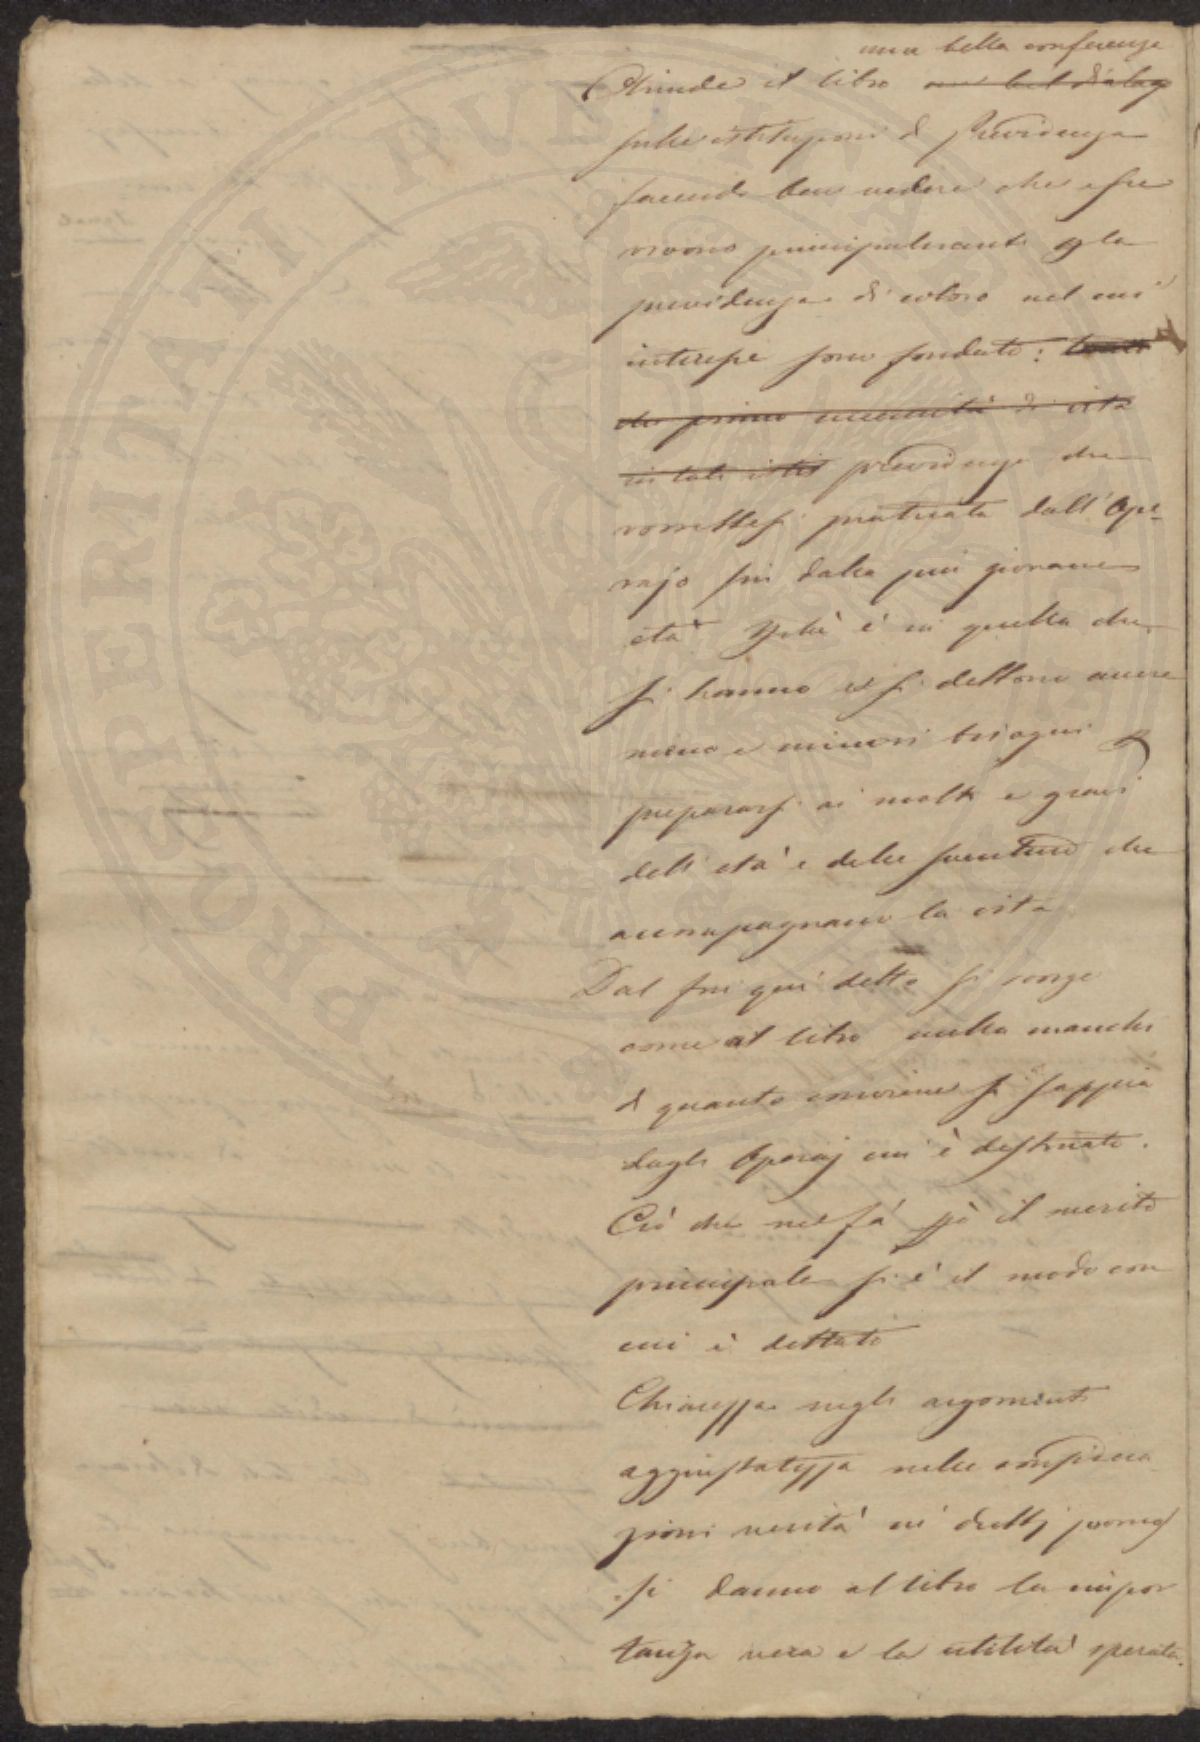 una bella conferenza
Chiude il libro un bel dialogo
sulle istituzioni di Previdenza
facendo ben vedere che esse
vivono principalmente per la
previdenza di coloro nel cui
interesse sono fondate:
che prima necessità di vita
in tali istit previdenza che
vorrebbesi praticata dall'Ope-
rajo fin dalla più giovane
età Poiché è in quella che
si hanno e si debbono avere
meno e minori bisogni per
prepararsi ai molti e gravi
dell'età e delle sventure che
accompagnano la vita
Dal fin qui detto si scorge
come al libro nulla manchi
di quanto conviene si sappia
dagli Operaj cui è destinato.
Ciò che ne fà però il merito
principale si è il modo con
cui è dettato
Chiarezza negli argomenti
aggiustatezza nelle considera
zioni verità ne' detti
si danno al libro la impor
tanza vera e la utilità sperata.
PROSPERITATI PUBLICAE